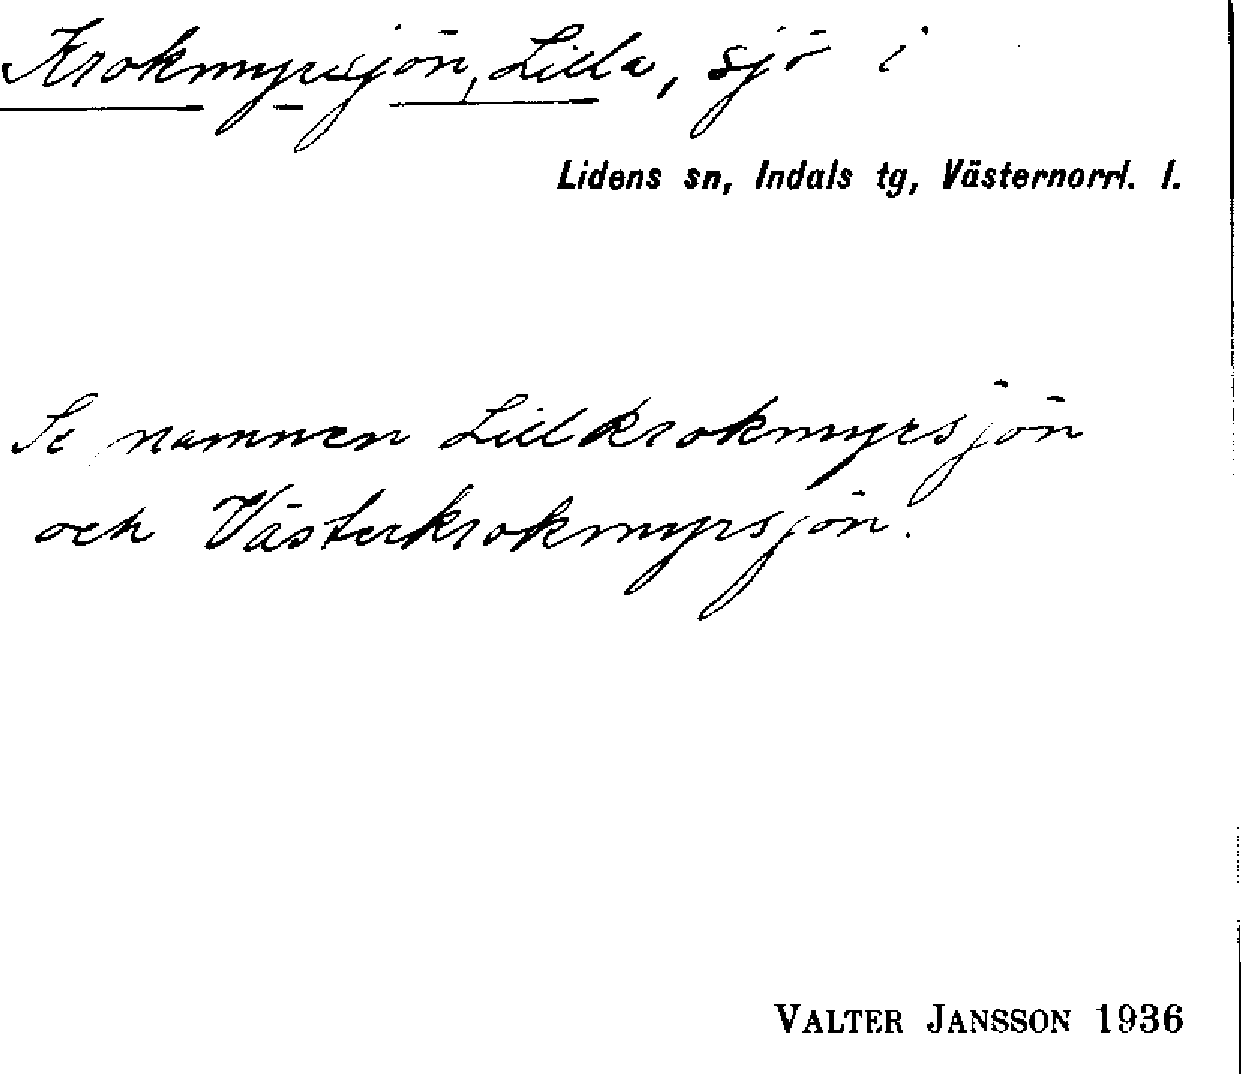 Krokmyrsjön, Lilla, sjö i
Lidens sn, Indals tg, Västernorrl. l.
Se namnen Lillkrokmyrsjön
och Västerkrokmyrsjön.
VALTER JANSSON 1936